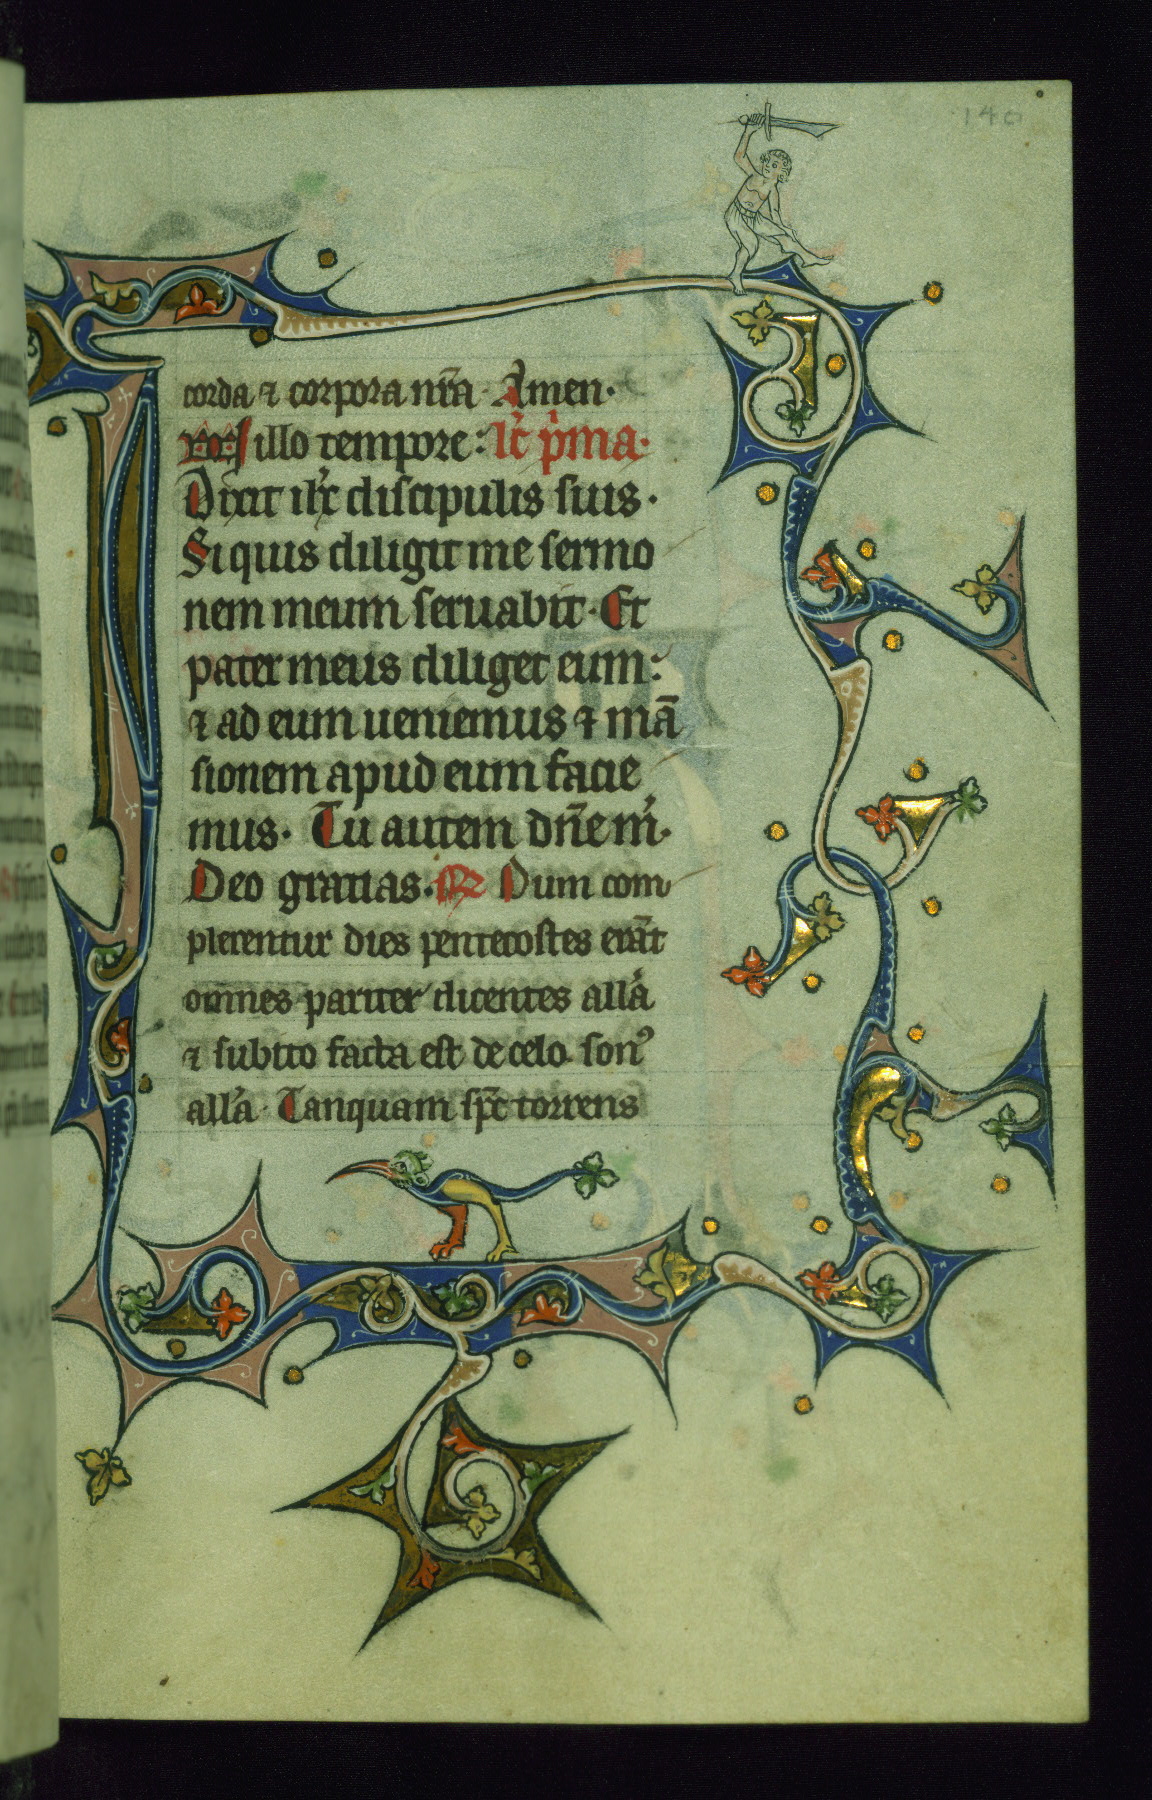 140
corda ⁊ corpora nr̃a · Amen ·
illo tempore : lc̃ p̃ma ·
Dixit ih̃c discipulis suis ·
Si quis diligit me sermo
nem meum seruabit · Et
pater meus diliget eum :
⁊ ad eum ueniemus ⁊ mã
sionem apud eum facie
mus · Tu autem dñe m̃ ·
Deo gratias · R Dum com
plerentur dies pentecostes erãt
omnes pariter dicentes allã
⁊ subito factа est de celo sonꝰ
all'a · Tanquam sp̃c torrens